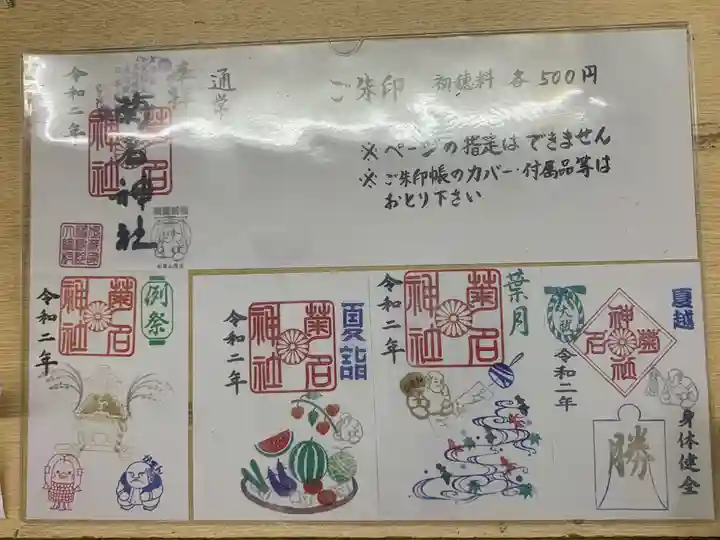 ご朱印 初穂料 各500円
※ページの指定はできません
※ご朱印帳のカバー・付属品等は
おとり下さい
通常
奉拝
菊名神社
令和二年
例祭
菊名神社
令和二年
がまん
夏詣
菊名神社
令和二年
葉月
菊名神社
令和二年
夏越
大祓
菊名神社
令和二年
身体健全
勝